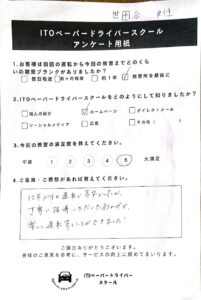 ITOペーパードライバースクール
アンケート用紙
1.お客様は前回の運転から今回の教習までどのくらいの期間ブランクがありましたか?
□数日程度 □数ヶ月程度 □約1年 ☑教習所を最後に
2.ITOペーパードライバースクールをどのようにして知りましたか?
□知人の紹介 ☑ホームページ □ダイレクトメール
□ソーシャルメディア □広告 □その他( )
3.今回の教習の満足度を教えてください。
不満 1 2 3 4 5 大満足
4.ご意見・ご感想があれば教えてください。
10年ぶりの運転で不安でしたが、
丁寧に指導いただいたおかげで、
楽しく運転することができました!
ご協力ありがとうございます。
皆様のご意見を参考に、サービスの向上に努めてまいります。
ITOペーパードライバー
スクール